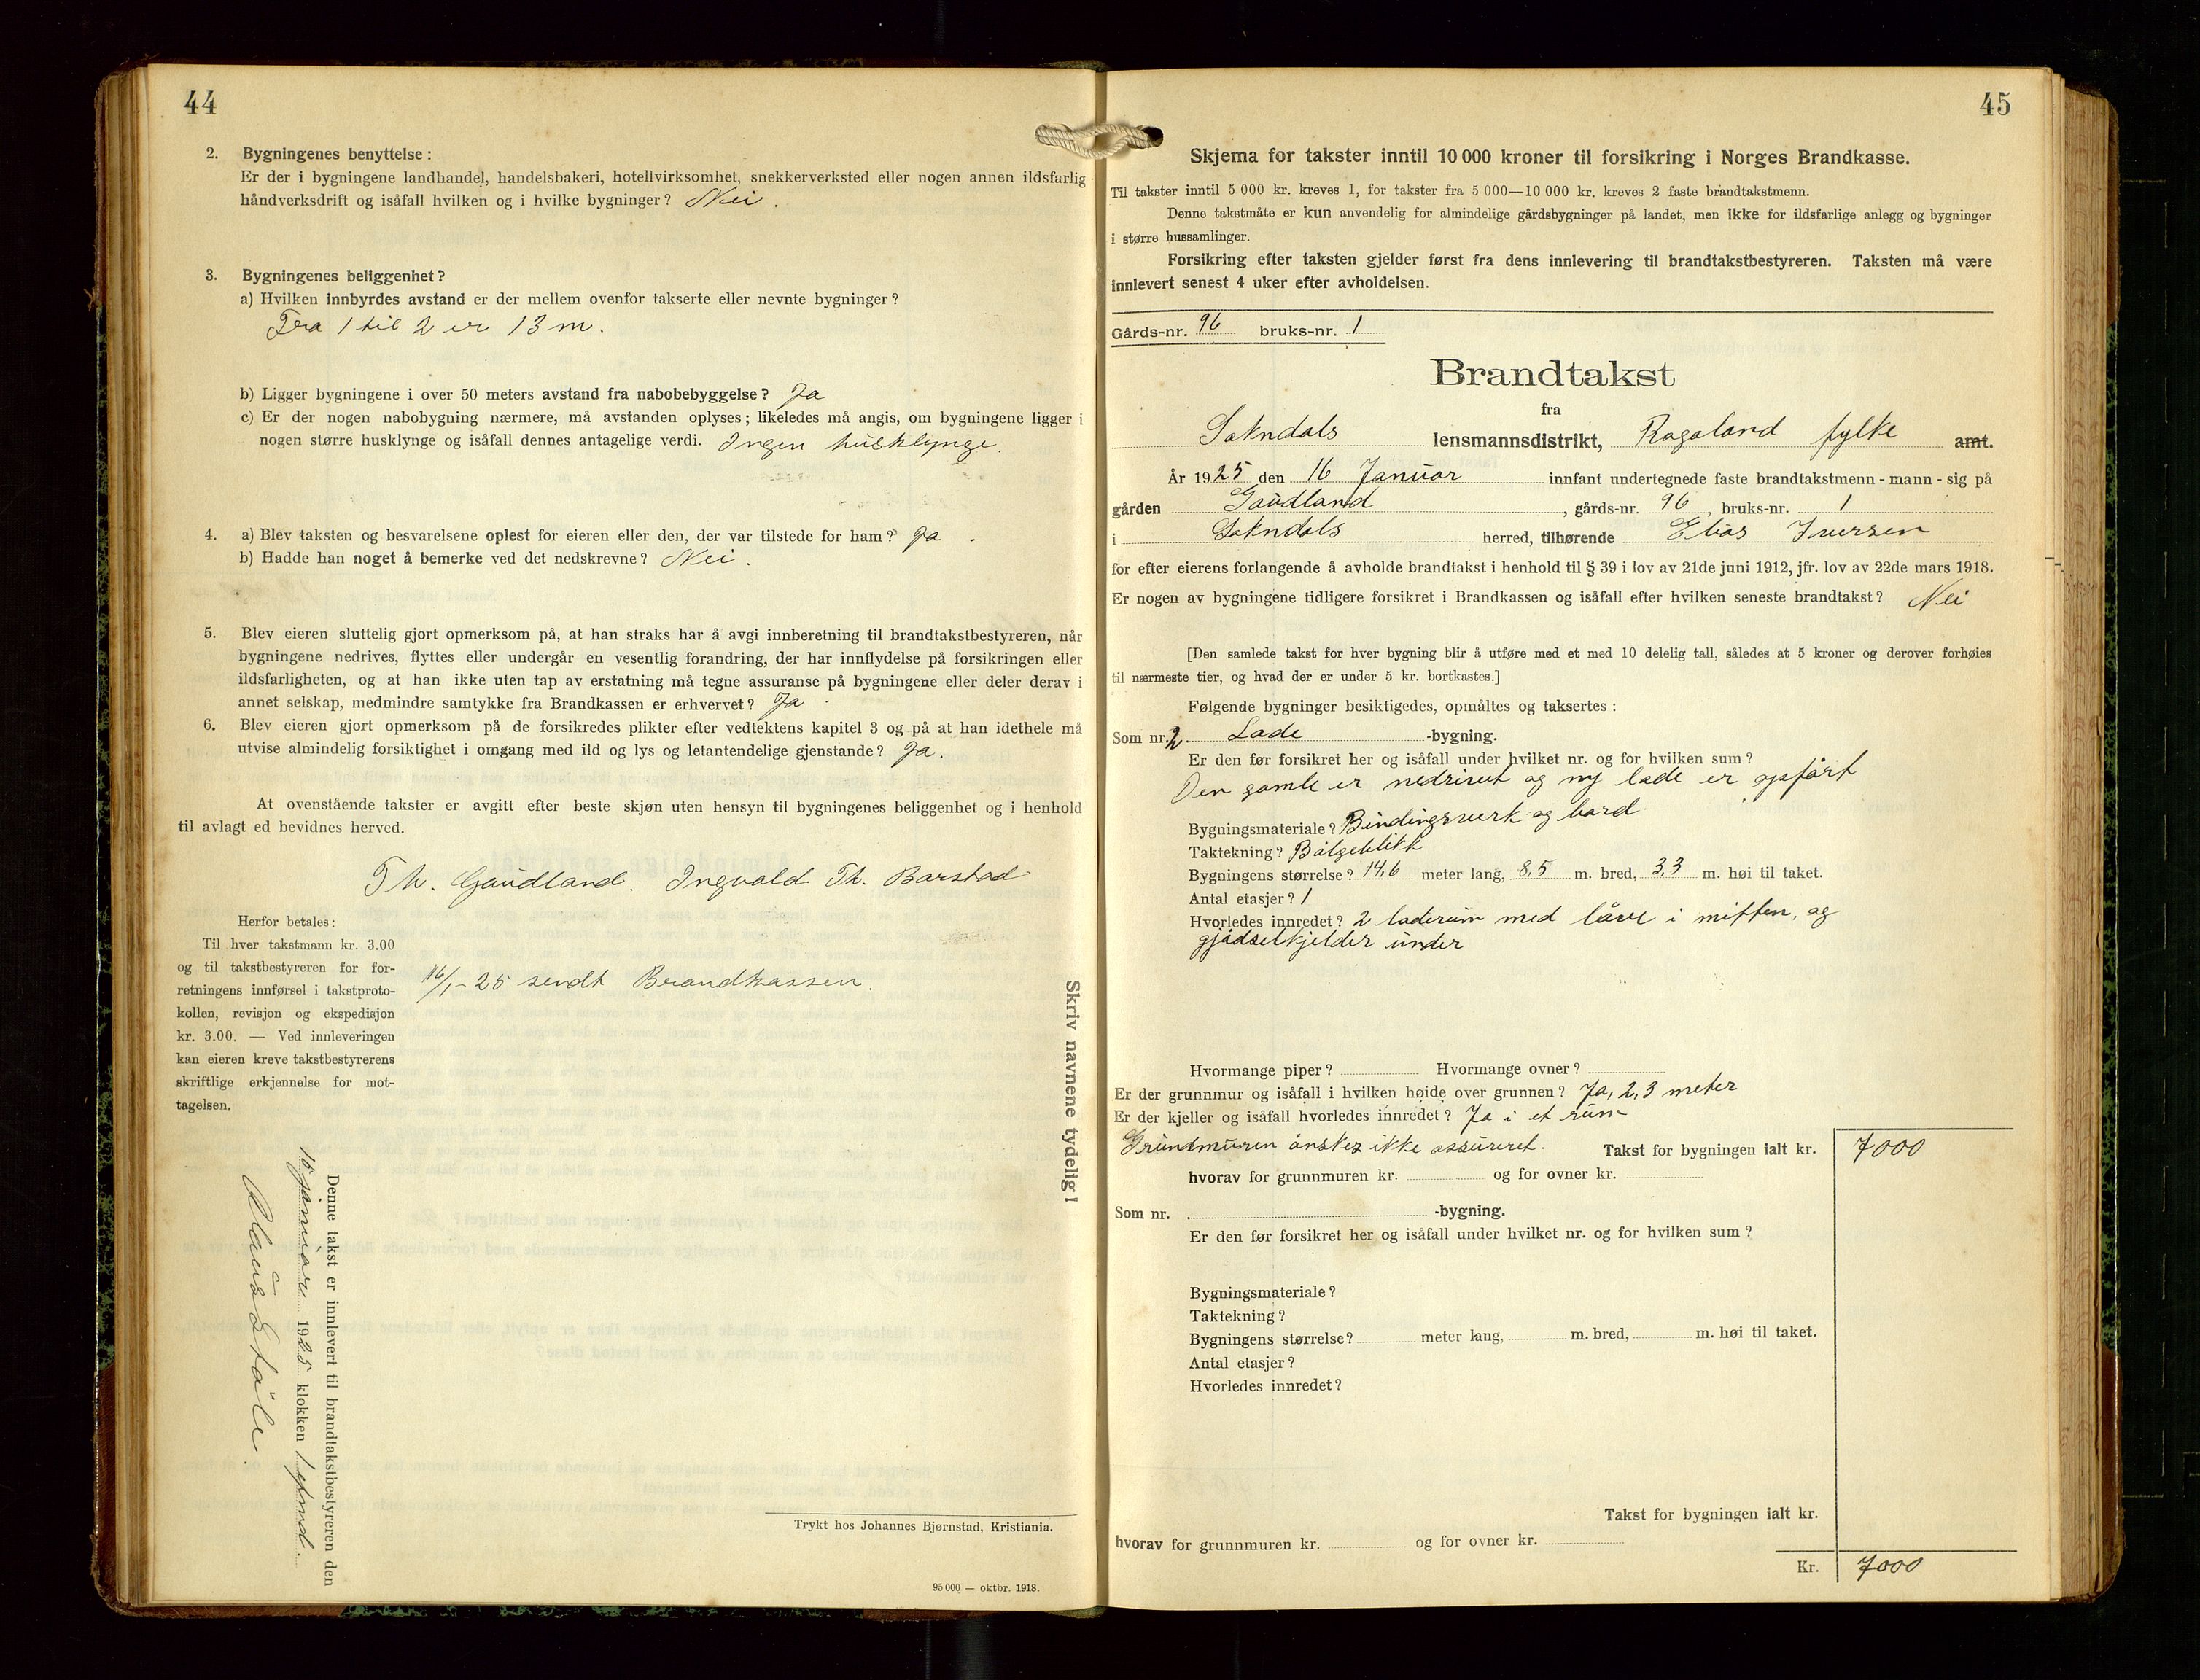 44
2. Bygningenes benyttelse:
Er der i bygningene landhandel, handelsbakeri, hotellvirksomhet, snekkerverksted eller nogen annen ildsfarlig
håndverksdrift og isåfall hvilken og i hvilke bygninger? Nei.
3. Bygningenes beliggenhet?
a) Hvilken innbyrdes avstand er der mellem ovenfor takserte eller nevnte bygninger?
Fra 1 til 2 er 13 m.
b) Ligger bygningene i over 50 meters avstand fra nabobebyggelse? Ja
c) Er der nogen nabobygning nærmere, må avstanden oplyses; likeledes må angis, om bygningene ligger i
nogen større husklynge og isåfall dennes antagelige verdi. Ingen husklynge.
4. a) Blev taksten og besvarelsene oplest for eieren eller den, der var tilstede for ham? Ja.
b) Hadde han noget å bemerke ved det nedskrevne? Nei.
5. Blev eieren sluttelig gjort opmerksom på, at han straks har å avgi innberetning til brandtakstbestyreren, når
bygningene nedrives, flyttes eller undergår en vesentlig forandring, der har innflydelse på forsikringen eller
ildsfarligheten, og at han ikke uten tap av erstatning må tegne assuranse på bygningene eller deler derav i
annet selskap, medmindre samtykke fra Brandkassen er erhvervet? Ja.
6. Blev eieren gjort opmerksom på de forsikredes plikter efter vedtektens kapitel 3 og på at han idethele må
utvise almindelig forsiktighet i omgang med ild og lys og letantendelige gjenstande? Ja.
At ovenstående takster er avgitt efter beste skjøn uten hensyn til bygningenes beliggenhet og i henhold
til avlagt ed bevidnes herved.
Th. Gaudland. Ingvald Th. Barstad
Herfor betales:
Til hver takstmann kr. 3.00
og til takstbestyreren for for-
retningens innførsel i takstproto-
kollen, revisjon og ekspedisjon
kr. 3.00. — Ved innleveringen
kan eieren kreve takstbestyrerens
skriftlige erkjennelse for mot-
tagelsen.
16/1-25 sendt Brandkassen.
Skriv navnene tydelig!
Denne takst er innlevert til brandtakstbestyreren den
16 januar 1925 klokken 1 efmd.
Olaus Støle.
Trykt hos Johannes Bjørnstad, Kristiania.
95 000 — oktbr. 1918.
45
Skjema for takster inntil 10 000 kroner til forsikring i Norges Brandkasse.
Til takster inntil 5 000 kr. kreves 1, for takster fra 5 000—10 000 kr. kreves 2 faste brandtakstmenn.
Denne takstmåte er kun anvendelig for almindelige gårdsbygninger på landet, men ikke for ildsfarlige anlegg og bygninger
i større hussamlinger.
Forsikring efter taksten gjelder først fra dens innlevering til brandtakstbestyreren. Taksten må være
innlevert senest 4 uker efter avholdelsen.
Gårds-nr. 96 bruks-nr. 1
Brandtakst
fra
Sokndals lensmannsdistrikt, Rogaland fylke amt.
År 1925 den 16 Januar innfant undertegnede faste brandtakstmenn - mann - sig på
gården Gaudland, gårds-nr. 96, bruks-nr. 1
i Sokndals herred, tilhørende Elias Iversen
for efter eierens forlangende å avholde brandtakst i henhold til § 39 i lov av 21de juni 1912, jfr. lov av 22de mars 1918.
Er nogen av bygningene tidligere forsikret i Brandkassen og isåfall efter hvilken seneste brandtakst? Nei
[Den samlede takst for hver bygning blir å utføre med et med 10 delelig tall, således at 5 kroner og derover forhøies
til nærmeste tier, og hvad der er under 5 kr. bortkastes.]
Følgende bygninger besiktigedes, opmåltes og taksertes:
Som nr. 2. Lade -bygning.
Er den før forsikret her og isåfall under hvilket nr. og for hvilken sum?
Den gamle er nedrivet og ny lade er opført
Bygningsmateriale? Bindingsverk og bord
Taktekning? Bølgeblikk
Bygningens størrelse? 14,6 meter lang, 8,5 m. bred, 3,3 m. høi til taket.
Antal etasjer? 1
Hvorledes innredet? 2 laderum med låve i mitten, og
gjødselkjelder under
Hvormange piper? Hvormange ovner?
Er der grunnmur og isåfall i hvilken høide over grunnen? Ja, 2,3 meter
Er der kjeller og isåfall hvorledes innredet? Ja i et rum
Grundmuren ønskes ikke assureret. Takst for bygningen ialt kr. 7000
hvorav for grunnmuren kr. og for ovner kr.
Som nr. -bygning.
Er den før forsikret her og isåfall under hvilket nr. og for hvilken sum?
Bygningsmateriale?
Taktekning?
Bygningens størrelse? meter lang, m. bred, m. høi til taket.
Antal etasjer?
Hvorledes innredet?
Takst for bygningen ialt kr.
hvorav for grunnmuren kr. og for ovner kr.
Kr. 7000